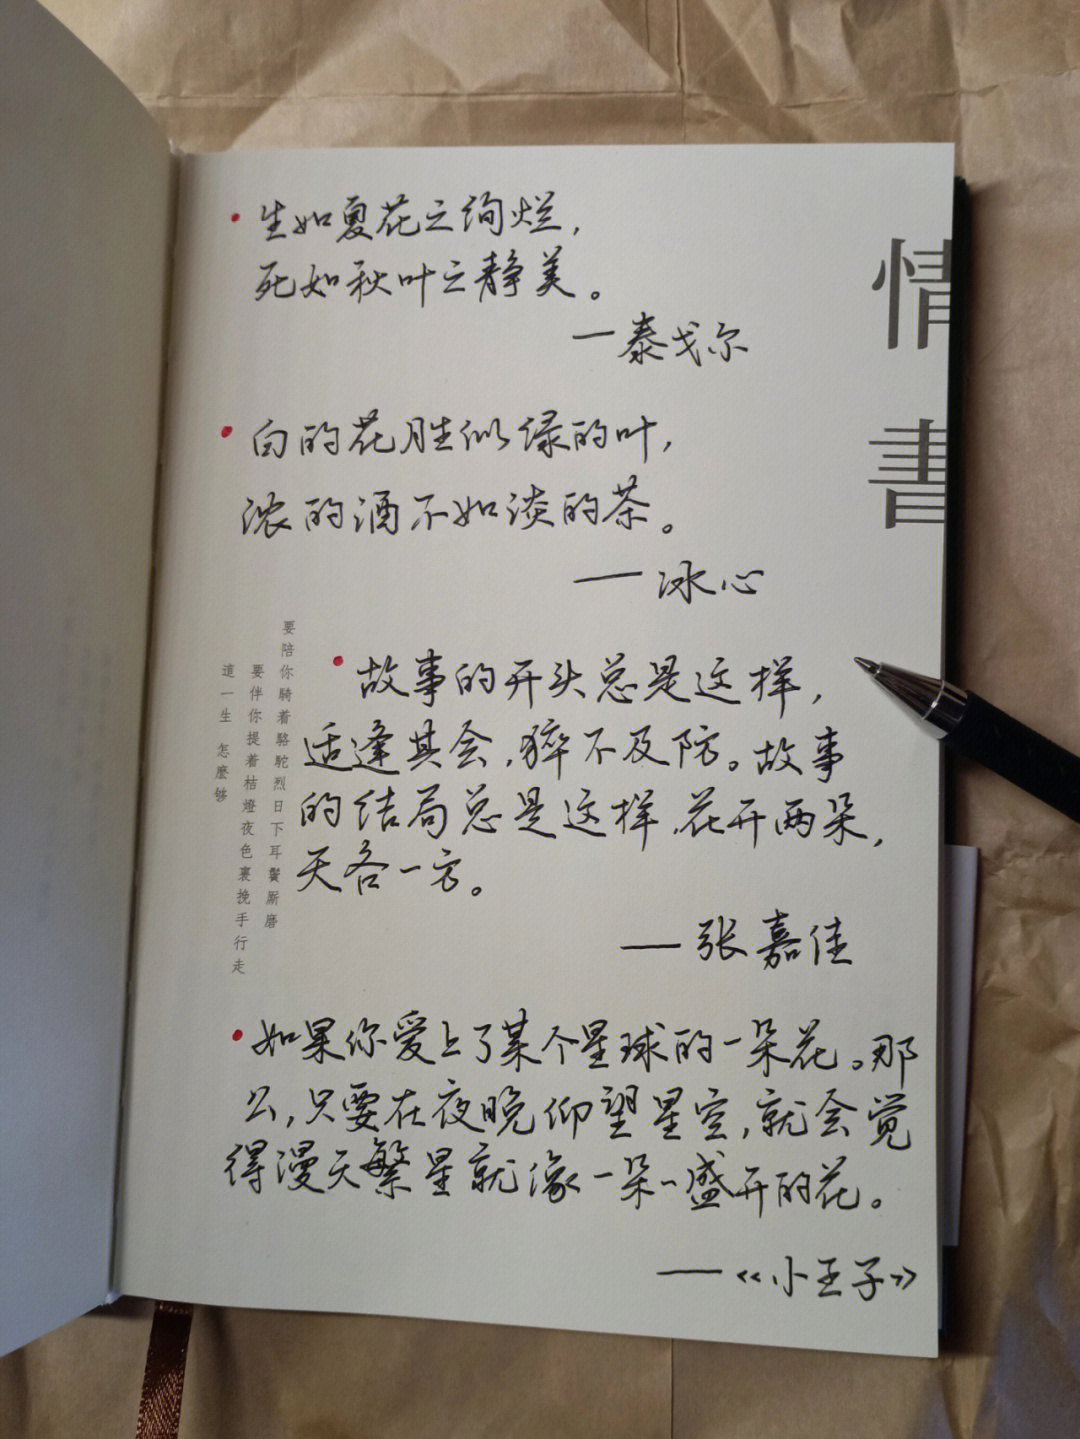 生如夏花之绚烂，
死如秋叶之静美。
—泰戈尔
白的花胜似绿的叶，
浓的酒不如淡的茶。
——冰心
故事的开头总是这样，
适逢其会，猝不及防。故事
的结局总是这样，花开两朵，
天各一方。
——张嘉佳
如果你爱上了某个星球的一朵花。那
么，只要在夜晚仰望星空，就会觉
得漫天繁星就像一朵一盛开的花。
——《小王子》
情書
要陪你騎着駱駝烈日下耳鬢厮磨
要伴你提着桔燈夜色裏挽手行走
這一生 怎麼够